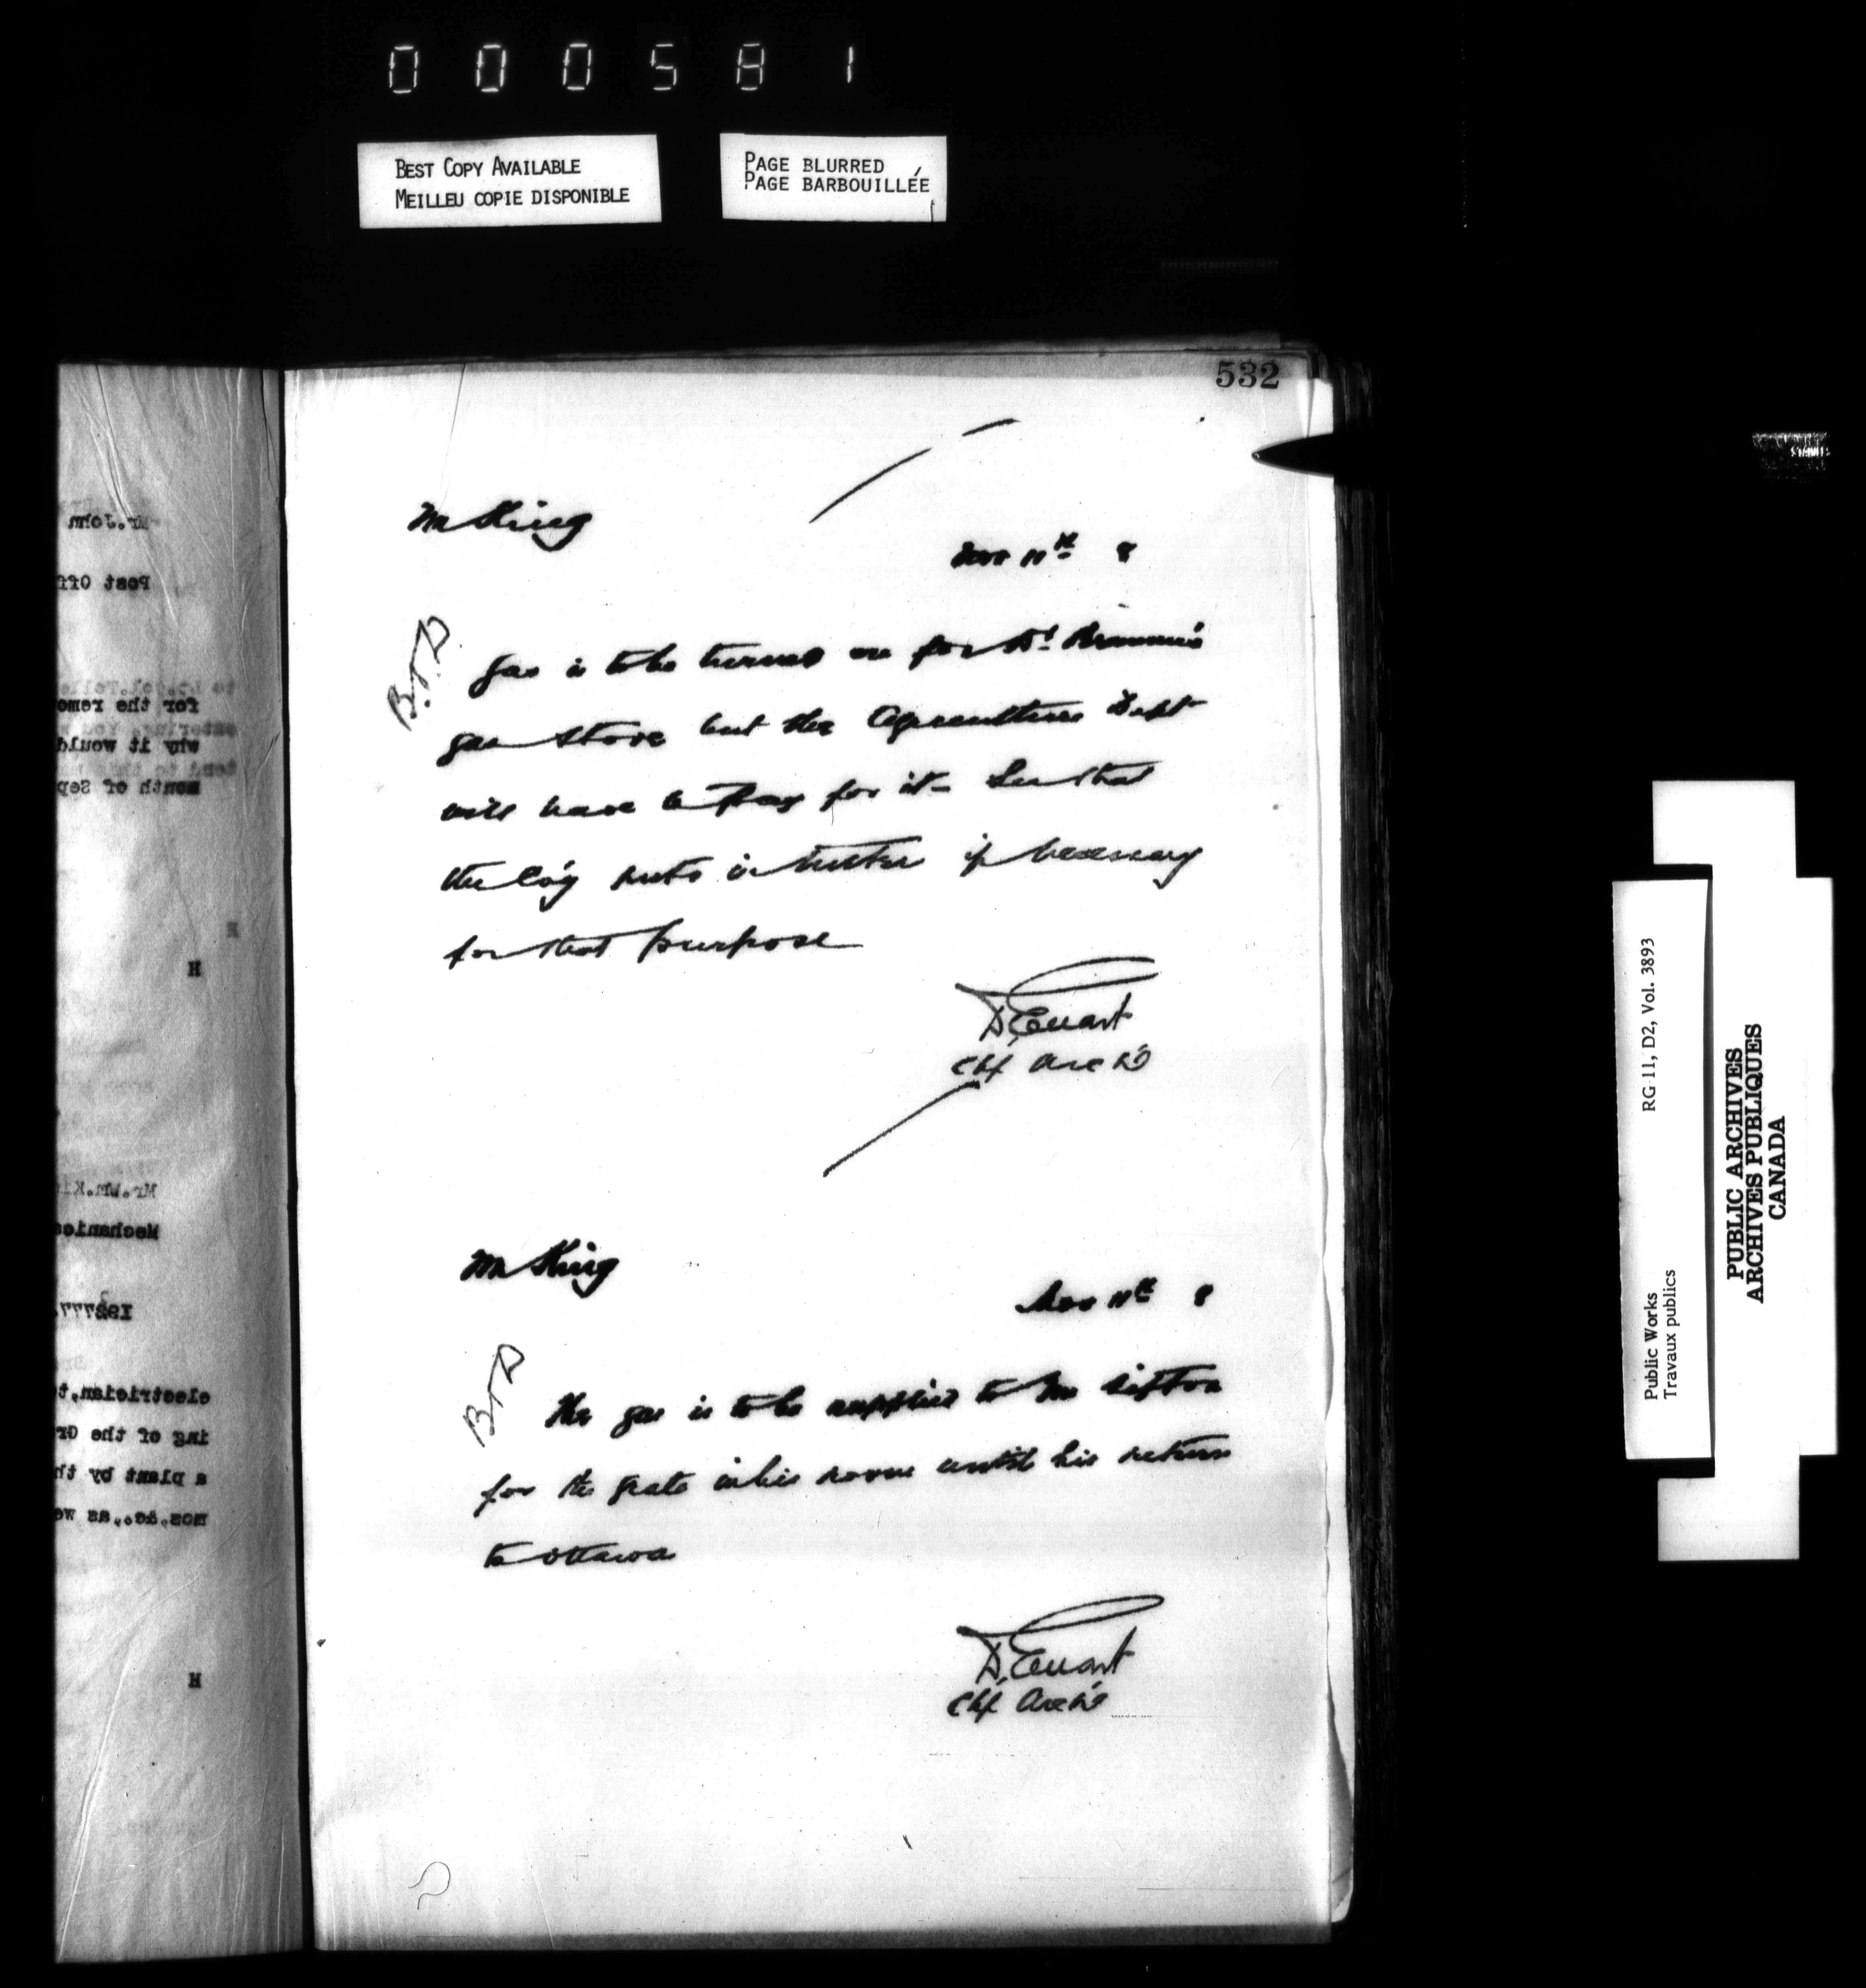 000581
BEST COPY AVAILABLE
MEILLEU COPIE DISPONIBLE
PAGE BLURRED
PAGE BARBOUILLÉE
532
Mr King
Nov 11th 8
B.T.D.
Gas is to be turned on for Dr.
gas stove but the Agriculture Dept
will have to pay for it - See that
the Co'y puts in meter if necessary
for that purpose
D. Ewart
Chf Arch't
Mr King
Nov 11th 8
BTD
The gas is to be supplied to Mr Sifton
for the grate in his room until his return
to Ottawa
D. Ewart
Chf Arch't
Mr. John
Post Off
for the remo
why it would
month of Sep
H
H
Mr. Wm. Ki
Mechanica
electrician, t
ing of the Gr
a plant by th
mos. &c., as we
H
RG 11, D2, Vol. 3893
Public Works
Travaux publics
PUBLIC ARCHIVES
ARCHIVES PUBLIQUES
CANADA